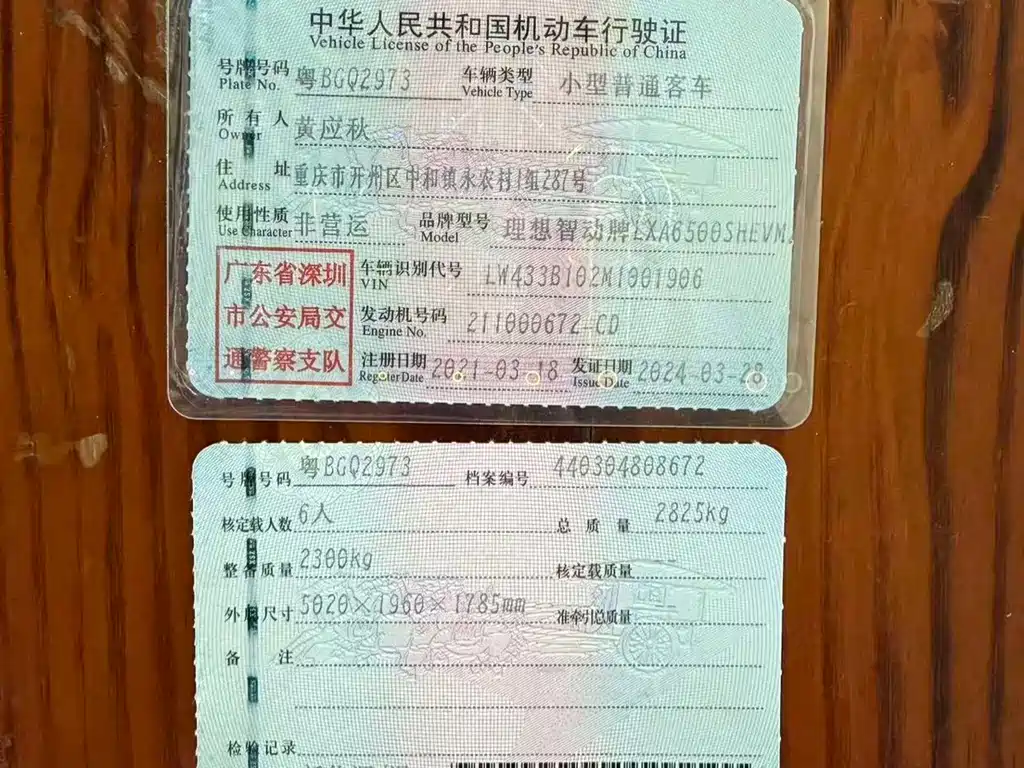 中华人民共和国机动车行驶证
Vehicle License of the People's Republic of China
号牌号码 粤BGQ2973 车辆类型 小型普通客车
Plate No. Vehicle Type
所有人 黄应秋
Owner
住址 重庆市开州区中和镇永农村1组287号
Address
使用性质 非营运 品牌型号 理想智动牌LXA6500SHEVM
Use Character Model
广东省深圳
市公安局交
通警察支队
车辆识别代号 LW433B102M1001906
VIN
发动机号码 211000672-CD
Engine No.
注册日期 2021-03-18 发证日期 2024-03-28
Register Date Issue Date
号牌号码 粤BGQ2973 档案编号 440304808672
核定载人数 6人 总质量 2825kg
整备质量 2300kg 核定载质量 --
外廓尺寸 5020×1960×1785mm 准牵引总质量 --
备注
检验记录